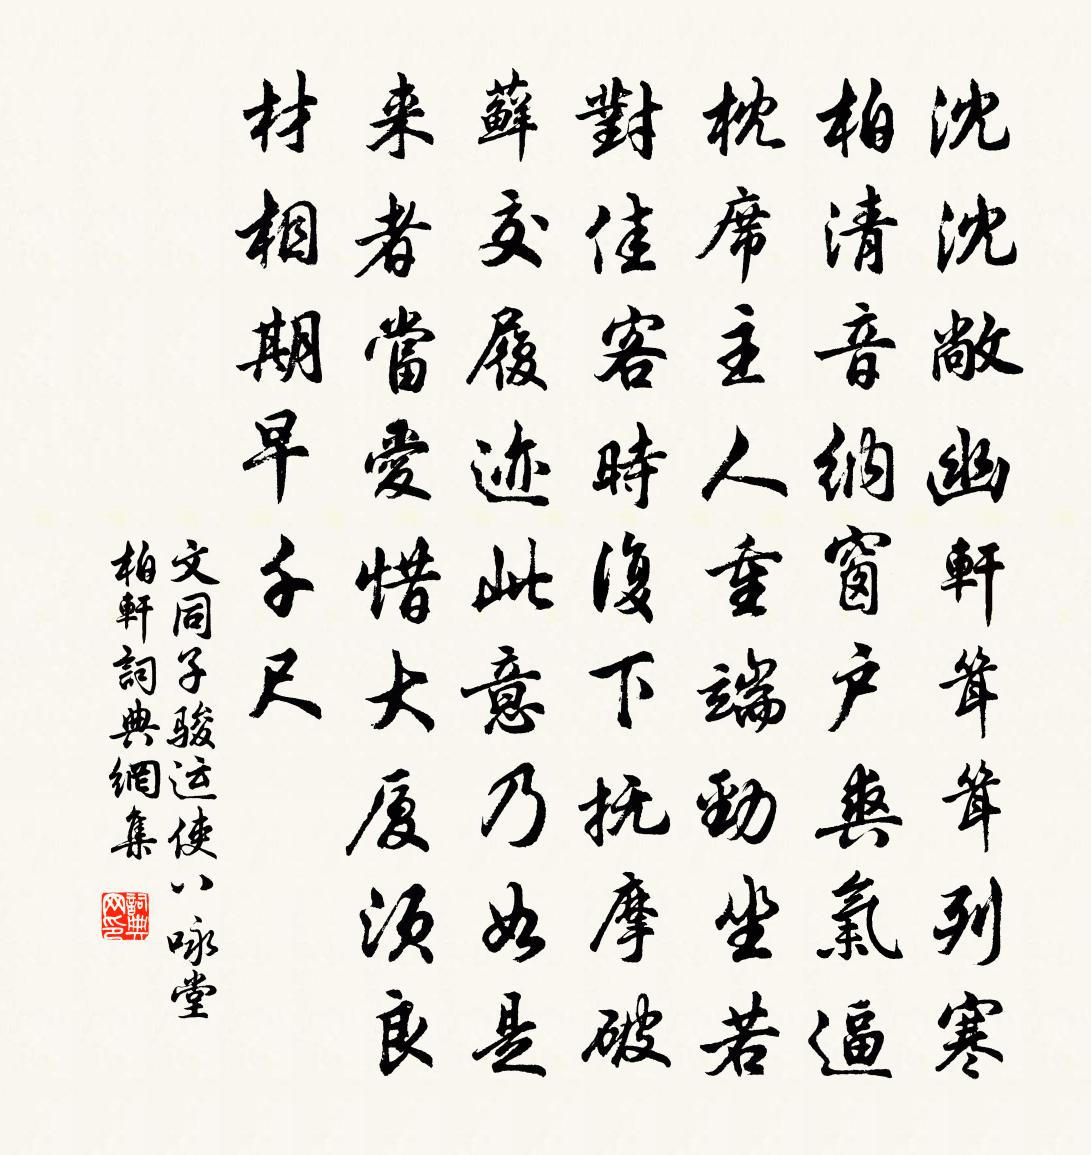 沈沈敞幽軒聳聳列寒
柏清音納窗户爽氣逼
枕席主人重端勁坐若
對佳客時復下抚摩破
蘚交履迹此意乃如是
来者當愛惜大厦須良
材相期早千尺
文同子骏运使八咏堂
柏軒詞典網集
詞典网印